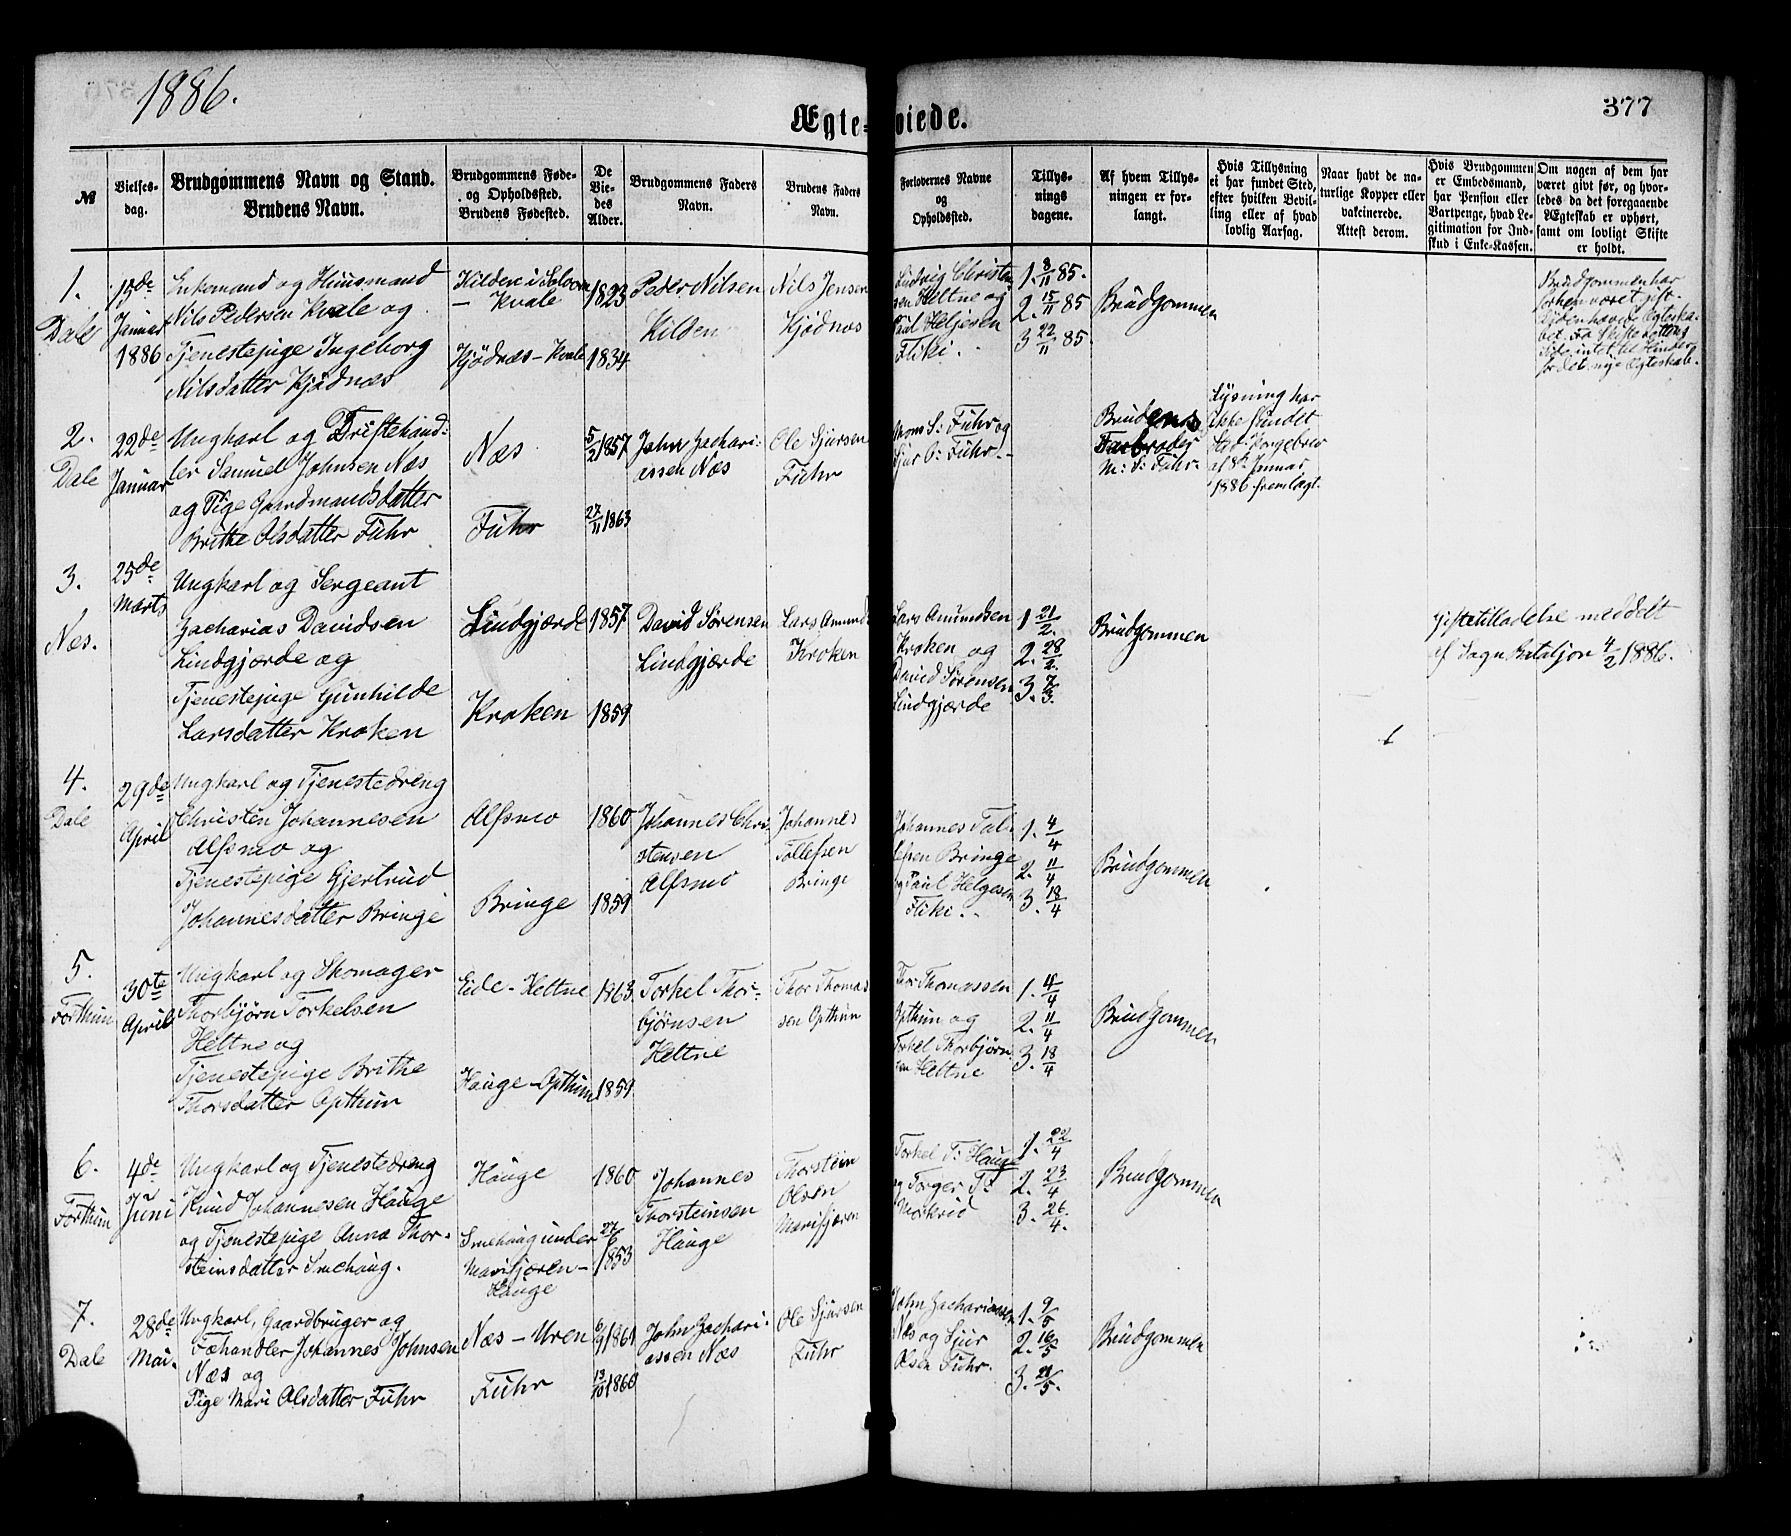 1886.
377
Ægte-
viede.
№
Vielses-
dag.
Brudgommens Navn og Stand.
Brudens Navn.
Brudgommens Føde-
og Opholdssted.
Brudens Fødested.
De
Vie-
des
Alder.
Brudgommens Faders
Navn.
Brudens Faders
Navn.
Forlovernes Navne
og
Opholdssted.
Tillys-
nings
dagene.
Af hvem Tillys-
ningen er for-
langt.
Hvis Tillysning
ei har fundet Sted,
efter hvilken Bevil-
ling eller af hvad
lovlig Aarsag.
Naar havt de na-
turlige Kopper eller
vakcinerede.
Attest derom.
Hvis Brudgommen
er Embedsmand,
har Pension eller
Vartpenge, hvad Le-
gitimation for Ind-
skud i Enke-Kassen.
Om nogen af dem har
været gift før, og hvor-
ledes da det foregaaende
Ægteskab er ophørt,
samt om lovligt Skifte
er holdt.
1.
Dale
15de
Januar
1886
Enkemand og Huusmand
Nils Pedersen Kvale og
Tjenestepige Ingeborg
Nilsdatter Kjødnæs
Kilden i
– Kvale
Kjødnæs – Kvale
1823
1834
Peder Nilsen
Kilden
Nils Jensen
Kjødnæs
Ludvig Christen
sen Heltne og
Paul Helgesen
Fliki.
1. 8/11 85.
2. 15/11 85
3 22/11 85.
Brudgommen
Brudgommen har
forhen været gift.
for det nye Ægteskab.
2.
Dale
22de
Januar
Ungkarl og Driftehand-
ler Samuel Johnsen Næs
og Pige Gaardmandsdatter
Brithe Olsdatter Fuhr
Næs
Fuhr
5/2 1857
27/11 1863
John Zachari-
assen Næs
Ole Sjursen
Fuhr
Mons S: Fuhr og
Sjur O: Fuhr.–
Brudens
Farbroder
M: S: Fuhr.
Lysning har
ikke fundet
Sted. Kongebrev
af 8de Januar
1886 fremlagt.
3.
Næs.
25de
Marts
Ungkarl og Sergeant
Zacharias Davidsen
Lindgjærde og
Tjenestepige Gunhilde
Larsdatter Kroken
Lindgjærde
Kroken
1857
1859
David Sørensen
Lindgjærde
Lars Amunds
Kroken
Lars Amundsen
Kroken og
David Sørensen
Lindgjærde
1 21/2.
2. 28/2.
3. 7/3.
Brudgommen
Giftetilladelse meddelt
af Sogn Bataljon 4/2 1886.
4.
Dale
29de
April
Ungkarl og Tjenestedreng
Christen Johannesen
Alfsmo og
Tjenestepige Gjertrud
Johannesdatter Bringe
Alfsmo
Bringe
1860
1859
Johannes Chri
stensen
Alfsmo
Johannes
Tollefsen
Bringe
Johannes Tol-
lefsen Bringe
og Paul Helgesen
Fliki.
1. 4/4
2. 11/4
3. 18/4
Brudgommen
5.
Forthun
30te
April
Ungkarl og Skomager
Thorbjørn Torkelsen
Heltne og
Tjenestepige Brithe
Thorsdatter Opthun
Eide – Heltne
Hauge – Opthun
1863
1859
Torkel Thor-
bjørnsen
Heltne
Thor Thomas
sen Opthun
Thor Thomassen
Opthun og
Torkel Thorbjørn
sen Heltne
1. 4/4
2. 11/4
3. 18/4
Brudgommen
6.
Forthun
4de
Juni
Ungkarl og Tjenestedreng
Knud Johannesen Hauge
og Tjenestepige Anna Thor-
steinsdatter Smehaug.
Hauge
Smehaug under
Marifjæren –
Hauge
1860
27/6 1853
Johannes
Thorsteinsen
Hauge
Thorstein
Olsen
Marifjæren
Torkel T: Hauge
og Torger T:
Mørkrid
1. 22/4
2. 23/4
3. 26/4.
Brudgommen
7.
Dale
28de
Mai.
Ungkarl, Gaardbruger og
Fæhandler Johannes Johnsen
Næs og
Pige Mari Olsdatter Fuhr
Næs – Uren
Fuhr
6/9 1861
13/10 1860
John Zachari-
assen Næs
Ole Sjursen
Fuhr
John Zachariassen
Næs og Sjur
Olsen Fuhr.
1. 9/5
2. 16/5
3. 21/5.
Brudgommen